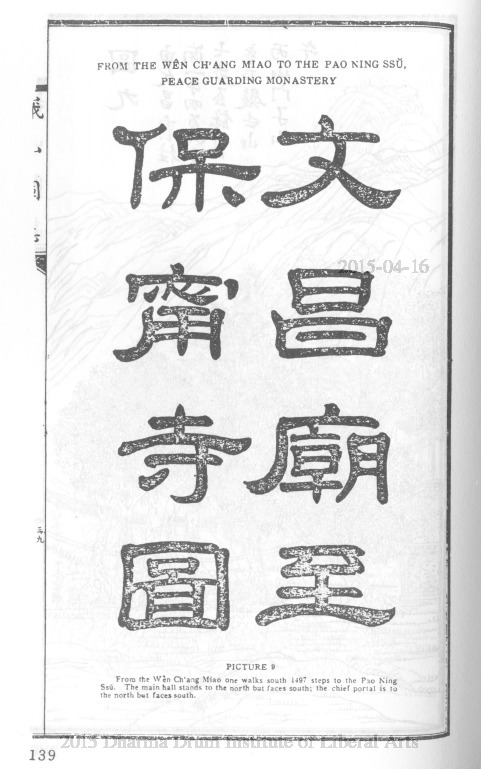 FROM THE WÊN CH'ANG MIAO TO THE PAO NING SSŬ,
PEACE GUARDING MONASTERY
文昌廟至
保甯寺圖
2015-04-16
三九
PICTURE 9
From the Wên Ch'ang Miao one walks south 1497 steps to the Pao Ning
Ssŭ. The main hall stands to the north but faces south; the chief portal is to
the north but faces south.
2015 Dharma Drum Institute of Liberal Arts
139